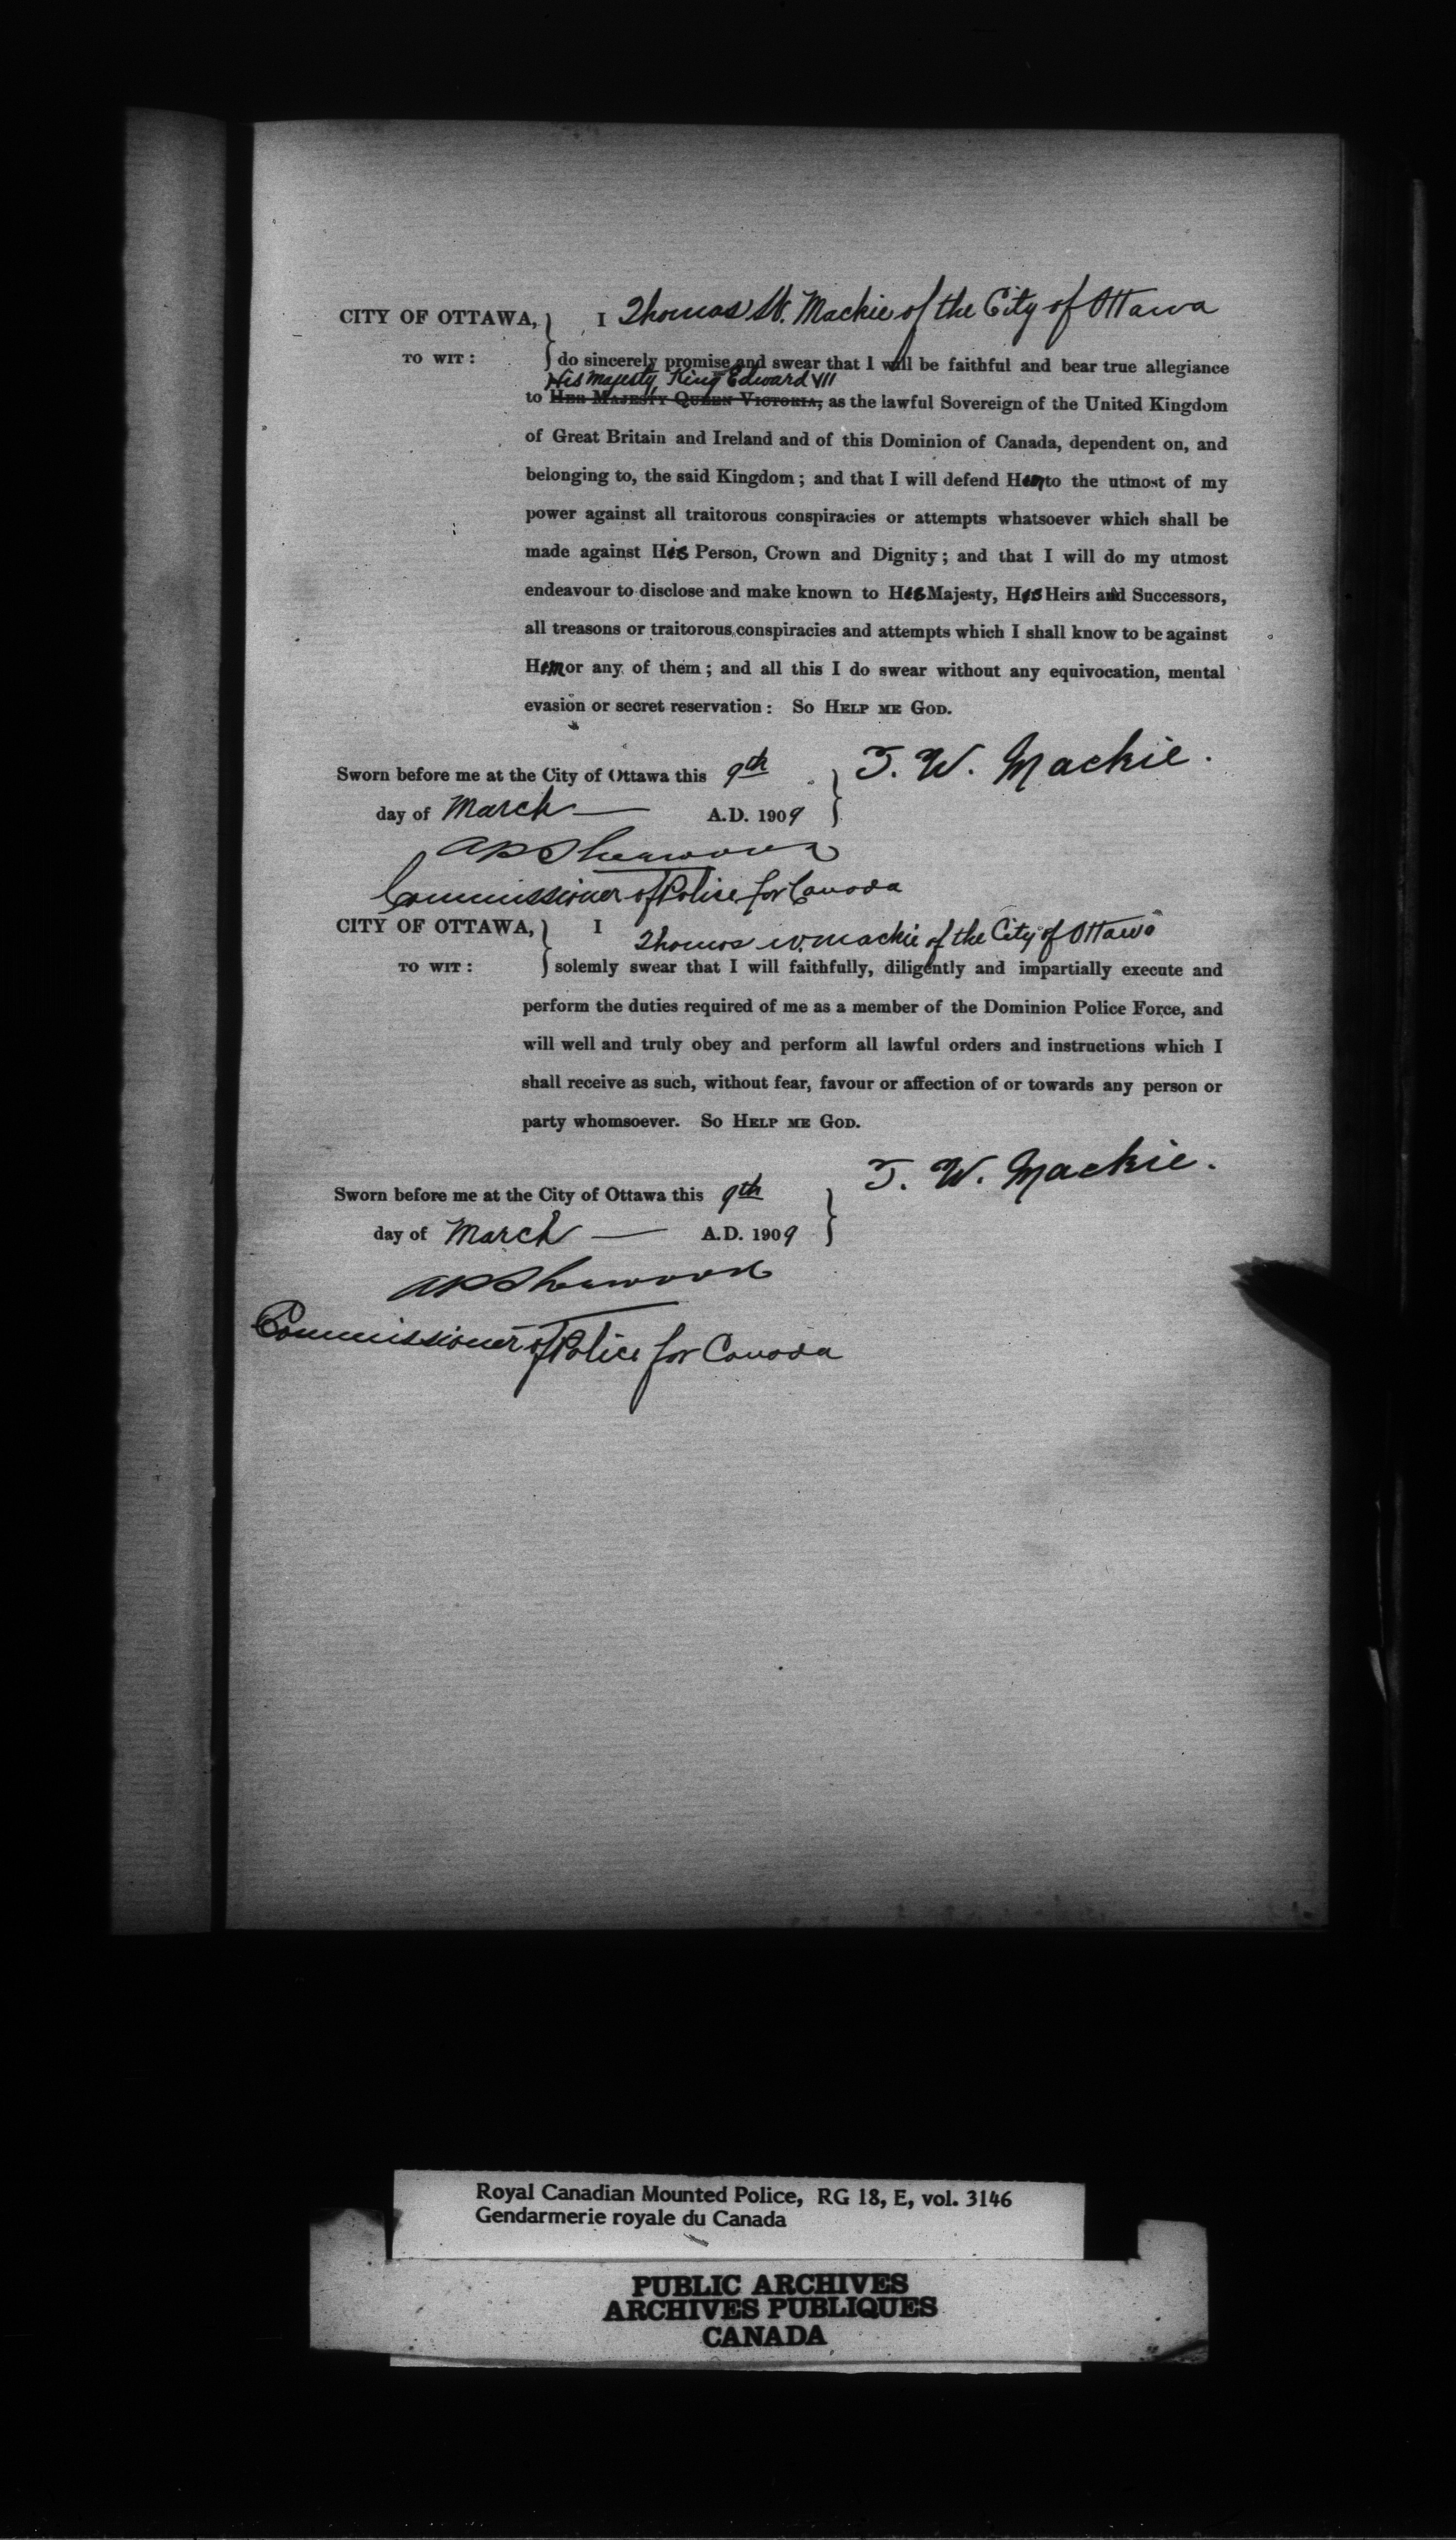 CITY OF OTTAWA, } I Thomas W. Mackie of the City of Ottawa
TO WIT : } do sincerely promise and swear that I will be faithful and bear true allegiance
His Majesty King Edward VII
to HER MAJESTY QUEEN VICTORIA, as the lawful Sovereign of the United Kingdom
of Great Britain and Ireland and of this Dominion of Canada, dependent on, and
belonging to, the said Kingdom ; and that I will defend Him to the utmost of my
power against all traitorous conspiracies or attempts whatsoever which shall be
made against His Person, Crown and Dignity ; and that I will do my utmost
endeavour to disclose and make known to His Majesty, His Heirs and Successors,
all treasons or traitorous conspiracies and attempts which I shall know to be against
Him or any of them ; and all this I do swear without any equivocation, mental
evasion or secret reservation : SO HELP ME GOD.
Sworn before me at the City of Ottawa this 9th } T. W. Mackie.
day of March — A.D. 1909
AP Sherwood
Commissioner of Police for Canada
CITY OF OTTAWA, } I Thomas W. Mackie of the City of Ottawa
TO WIT : } solemly swear that I will faithfully, diligently and impartially execute and
perform the duties required of me as a member of the Dominion Police Force, and
will well and truly obey and perform all lawful orders and instructions which I
shall receive as such, without fear, favour or affection of or towards any person or
party whomsoever. SO HELP ME GOD.
T. W. Mackie.
Sworn before me at the City of Ottawa this 9th }
day of March — A.D. 1909
AP Sherwood
Commissioner of Police for Canada
Royal Canadian Mounted Police, RG 18, E, vol. 3146
Gendarmerie royale du Canada
PUBLIC ARCHIVES
ARCHIVES PUBLIQUES
CANADA